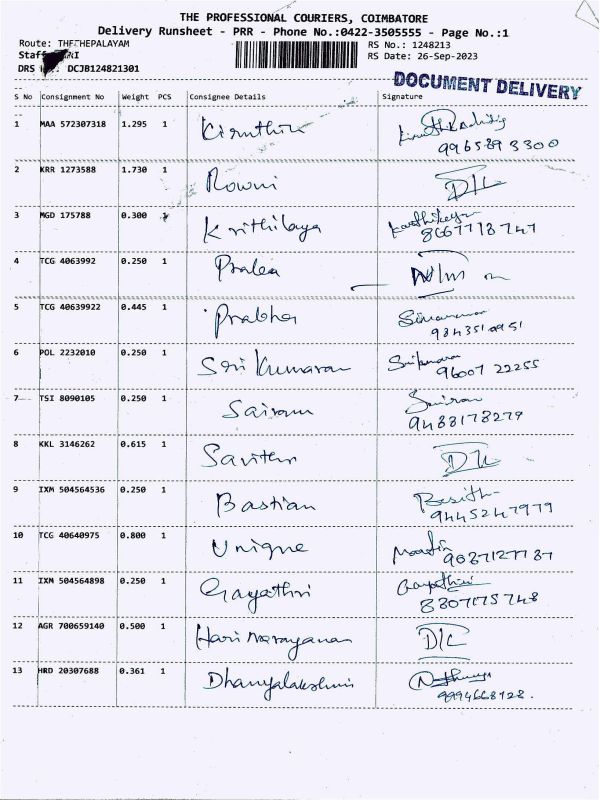 THE PROFESSIONAL COURIERS, COIMBATORE
Delivery Runsheet - PRR - Phone No.:0422-3505555 - Page No.:1
Route: THETHEPALAYAM RS No.: 1248213
Staff RS Date: 26-Sep-2023
DRS DCJB124821301
DOCUMENT DELIVERY
S No Consignment No Weight PCS Consignee Details Signature
1 MAA 572307318 1.295 1
2 KRR 1273588 1.730 1 D/L
3 MGD 175788 0.300 1 Krithilaya
8667718747
4 TCG 4063992 0.250 1
5 TCG 40639922 0.445 1 Prabha
6 POL 2232010 0.250 1 Sri Kumaran
96007 22255
7 TSI 8090105 0.250 1 Sairam
9488178279
8 KKL 3146262 0.615 1 D/L
9 IXM 504564536 0.250 1 Bastian
9445247979
10 TCG 40640975 0.800 1 Unique
11 IXM 504564898 0.250 1 Gayathri Gayathri
8307175748
12 AGR 700659140 0.500 1 Hari Narayanan D/L
13 HRD 20307688 0.361 1 Dhanyalakshmi
9994668128.